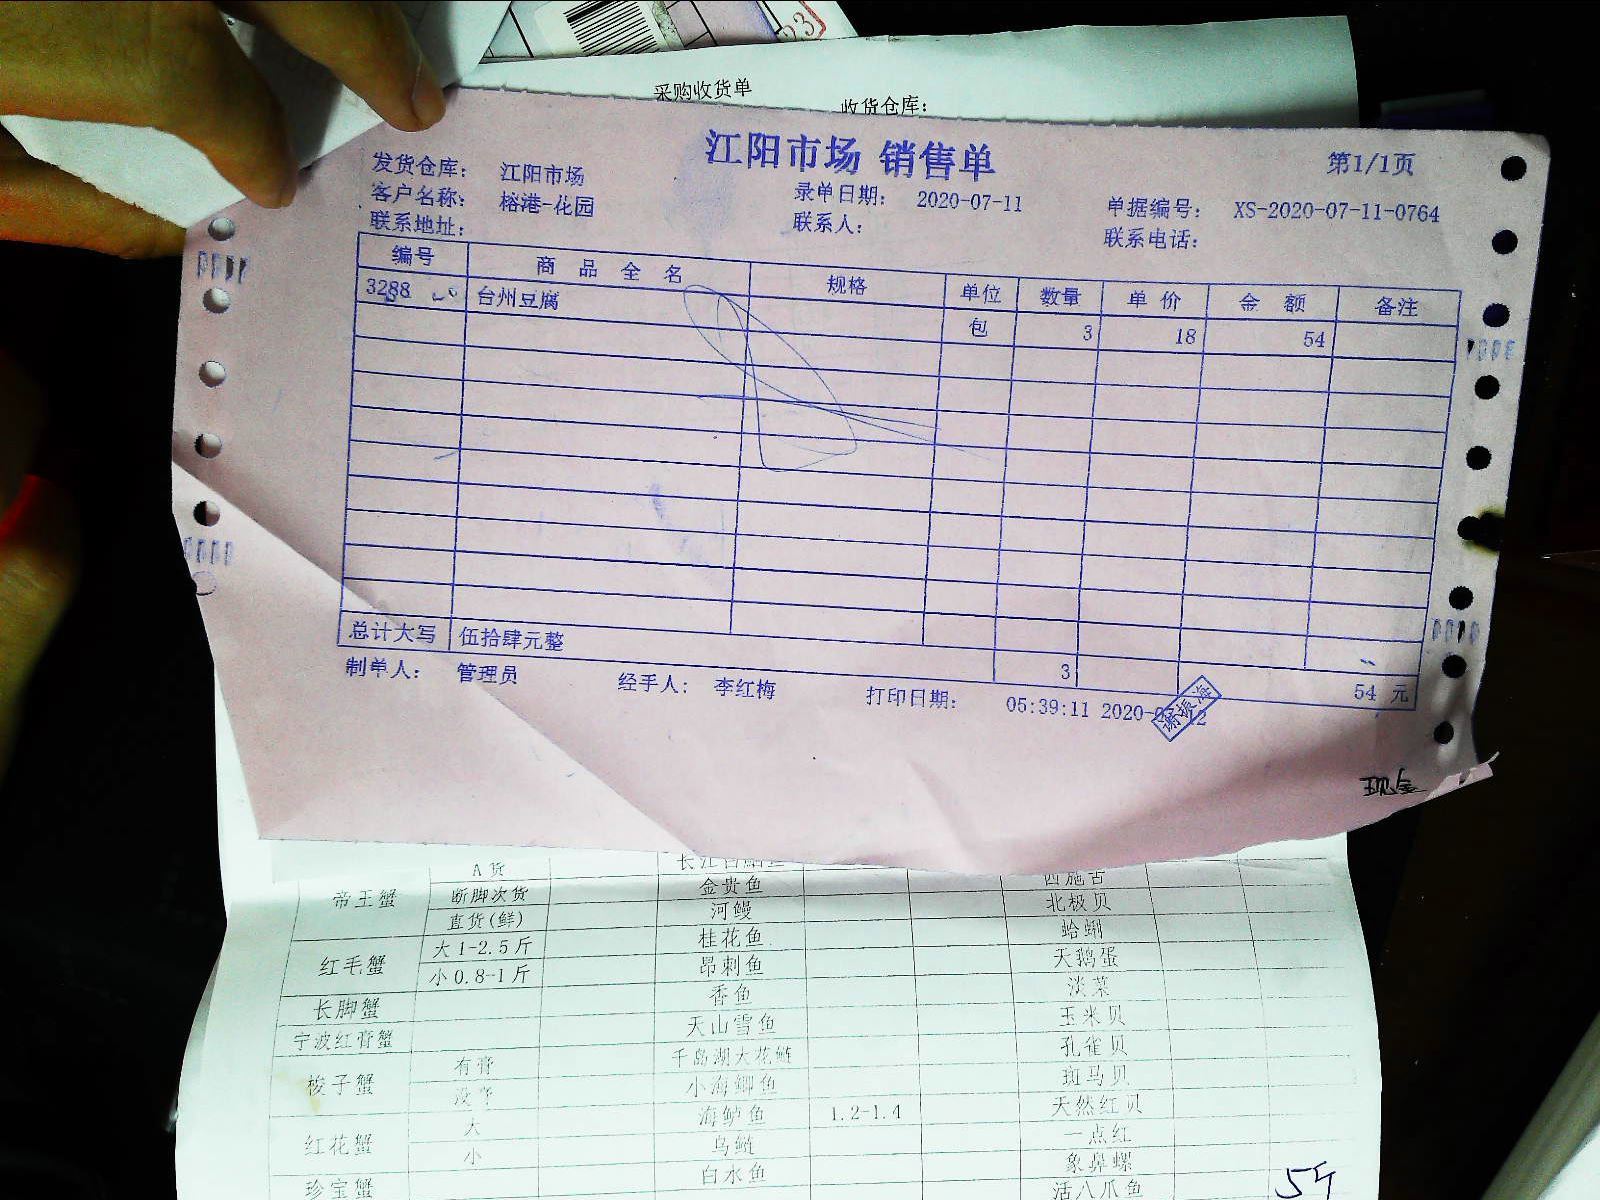 采购收货单
收货仓库：
江阳市场 销售单
第1/1页
发货仓库： 江阳市场
客户名称： 榕港-花园 录单日期： 2020-07-11 单据编号： XS-2020-07-11-0764
联系地址： 联系人： 联系电话：
编号 商品全名 规格 单位 数量 单价 金额 备注
3288 台州豆腐 包 3 18 54
总计大写 伍拾肆元整 3 54 元
制单人： 管理员 经手人： 李红梅 打印日期： 05:39:11
谢振海
现金
A货
帝王蟹 断脚次货 金贵鱼 西施舌
直货(鲜) 河鳗 北极贝
红毛蟹 大1-2.5斤 桂花鱼 蛤蜊
小0.8-1斤 昂刺鱼 天鹅蛋
长脚蟹 香鱼 淡菜
宁波红膏蟹 天山雪鱼 玉米贝
梭子蟹 有膏 千岛湖大花鲢 孔雀贝
没膏 小海鲫鱼 斑马贝
红花蟹 大 海鲈鱼 1.2-1.4 天然红贝
小 乌鲢 一点红
珍宝蟹 白水鱼 象鼻螺
活八爪鱼
54